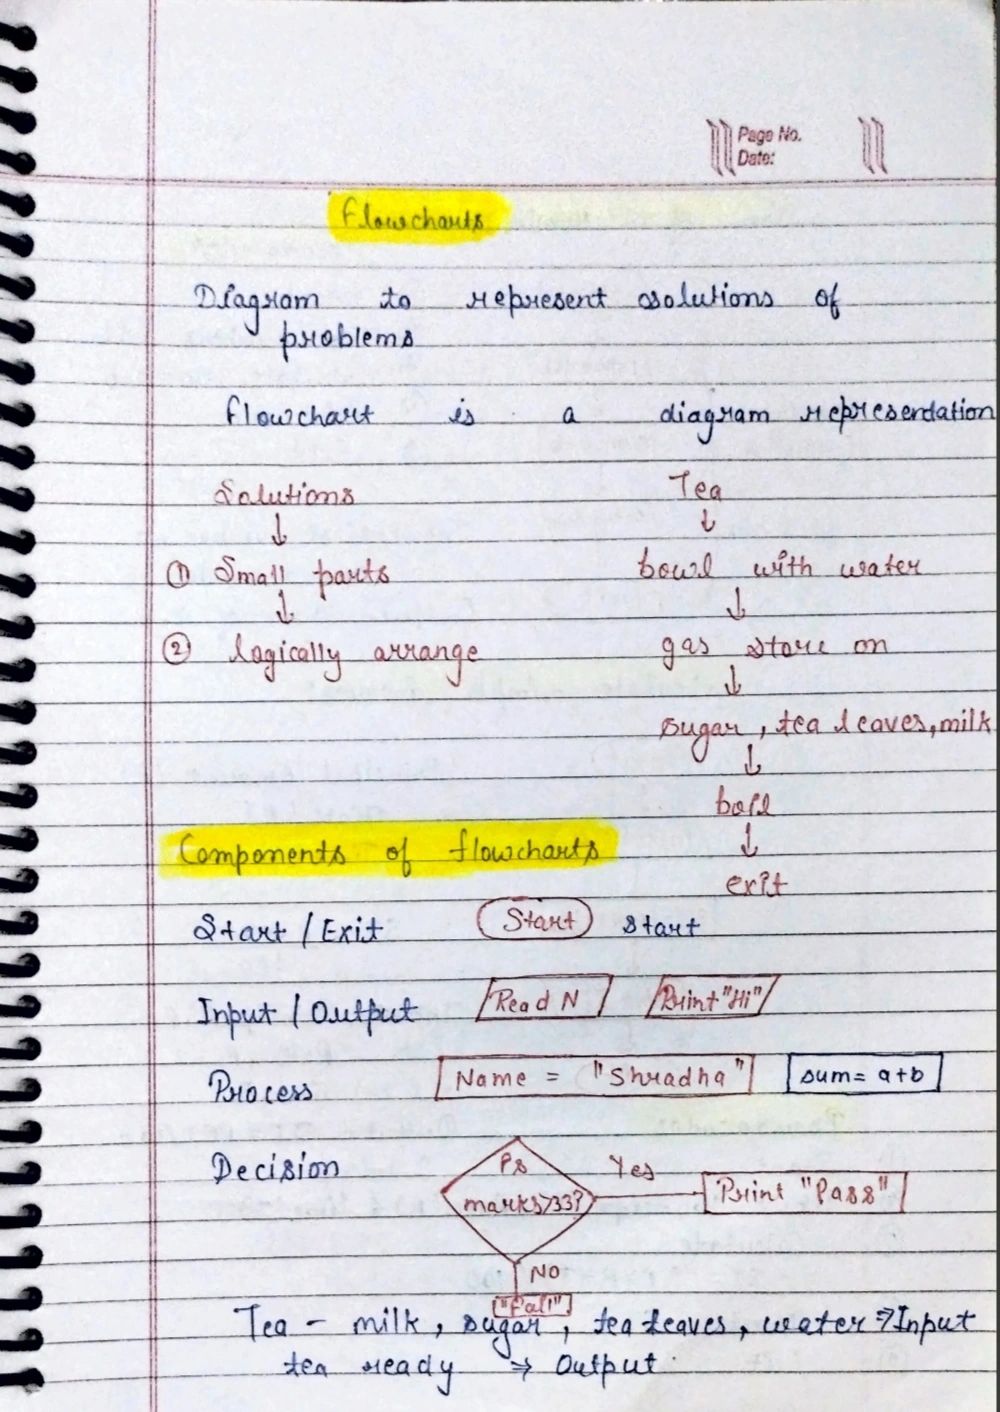 Page No.
Date:
Flowcharts
Diagram to represent solutions of
problems
flowchart is a diagram representation
Solutions
↓
① Small parts
↓
② logically arrange
Tea
↓
bowl with water
↓
gas stove on
↓
sugar, tea leaves, milk
↓
boil
↓
exit
Components of flowcharts
Start / Exit Start Start
Input / Output Read N Print "Hi"
Process Name = "Shradha" sum= a+b
Decision Is marks>33? Yes Print "Pass"
NO
"Fail"
Tea - milk, sugar, tea leaves, water ⇒ Input
tea ready ⇒ Output